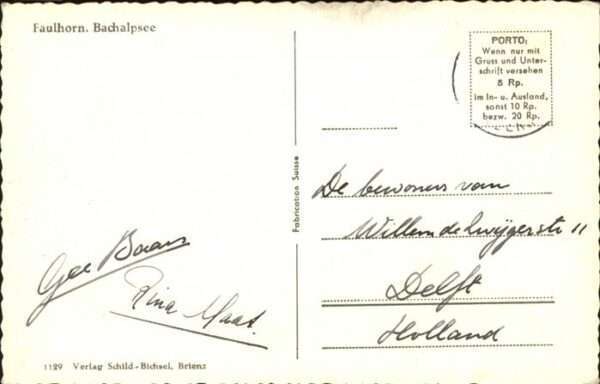 Faulhorn. Bachalpsee
PORTO:
Wenn nur mit
Gruss und Unter-
schrift versehen
5 Rp.
im In- u. Ausland,
sonst 10 Rp.
bezw. 20 Rp.
Fabrication Suisse
De bewoners van
Willem de Zwijgerstr 11
Delft
Holland
Gee Baars
Rina Maas.
1129 Verlag Schild-Bichsel, Brienz